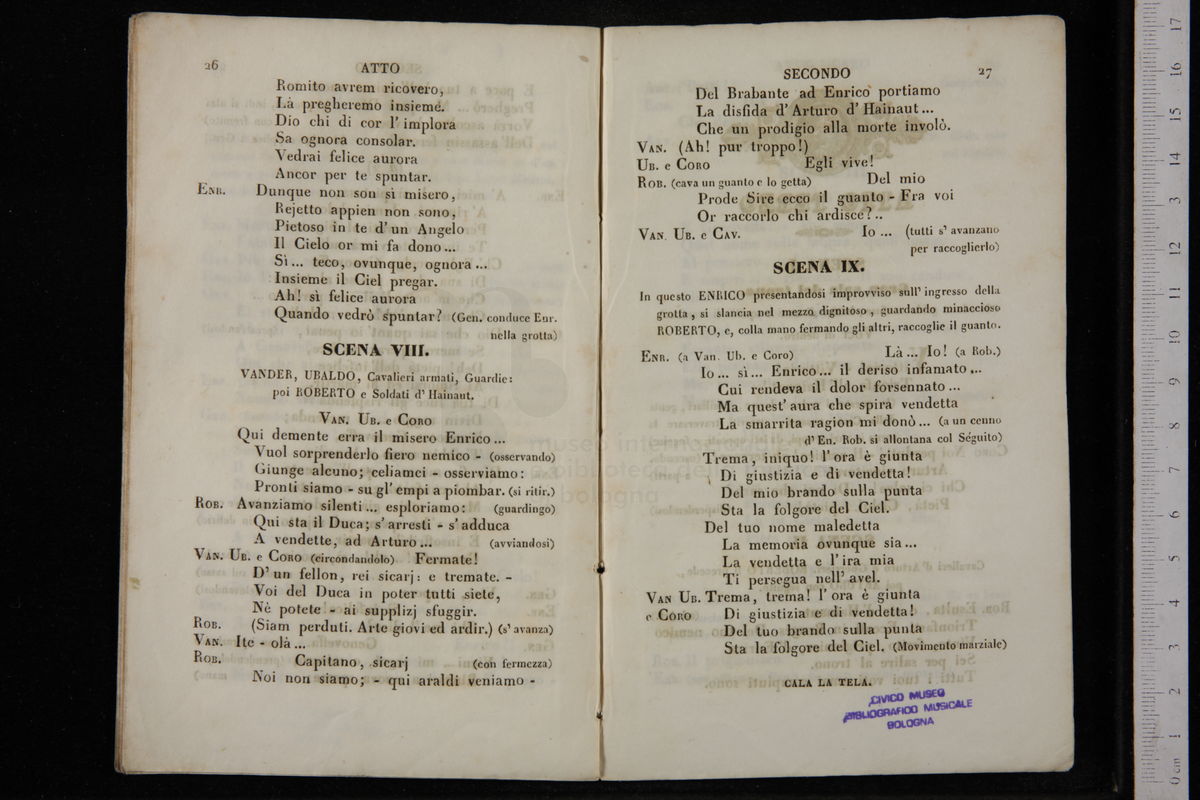 26
ATTO
Romito avrem ricovero,
Là pregheremo insieme.
Dio chi di cor l' implora
Sa ognora consolar.
Vedrai felice aurora
Ancor per te spuntar.
ENR. Dunque non son sì misero,
Rejetto appien non sono,
Pietoso in te d' un Angelo
Il Cielo or mi fa dono...
Sì... teco, ovunque, ognora...
Insieme il Ciel pregar.
Ah! sì felice aurora
Quando vedrò spuntar? (Gen. conduce Enr.
nella grotta)
SCENA VIII.
VANDER, UBALDO, Cavalieri armati, Guardie:
poi ROBERTO e Soldati d' Hainaut.
VAN. UB. e CORO
Qui demente erra il misero Enrico...
Vuol sorprenderlo fiero nemico - (osservando)
Giunge alcuno; celiamci - osserviamo:
Pronti siamo - su gl' empi a piombar. (si ritir.)
ROB. Avanziamo silenti... esploriamo: (guardingo)
Qui sta il Duca; s' arresti - s' adduca
A vendette, ad Arturo... (avviandosi)
VAN. UB. e CORO (circondandolo) Fermate!
D' un fellon, rei sicarj: e tremate. -
Voi del Duca in poter tutti siete,
Nè potete - ai supplizj sfuggir.
ROB. (Siam perduti. Arte giovi ed ardir.) (s' avanza)
VAN. Ite - olà...
ROB. Capitano, sicarj (con fermezza)
Noi non siamo; - qui araldi veniamo -
SECONDO
27
Del Brabante ad Enrico portiamo
La disfida d' Arturo d' Hainaut...
Che un prodigio alla morte involò.
VAN. (Ah! pur troppo!)
UB. e CORO Egli vive!
ROB. (cava un guanto e lo getta) Del mio
Prode Sire ecco il guanto - Fra voi
Or raccorlo chi ardisce?..
VAN. UB. e CAV. Io ... (tutti s' avanzano
per raccoglierlo)
SCENA IX.
In questo ENRICO presentandosi improvviso sull' ingresso della
grotta, si slancia nel mezzo dignitoso, guardando minaccioso
ROBERTO, e, colla mano fermando gli altri, raccoglie il guanto.
ENR. (a Van. Ub. e Coro) Là... Io! (a Rob.)
Io... sì... Enrico... il deriso infamato...
Cui rendeva il dolor forsennato...
Ma quest' aura che spira vendetta
La smarrita ragion mi donò... (a un cenno
d' En. Rob. si allontana col Séguito)
Trema, iniquo! l' ora è giunta
Di giustizia e di vendetta!
Del mio brando sulla punta
Sta la folgore del Ciel.
Del tuo nome maledetta
La memoria ovunque sia...
La vendetta e l' ira mia
Ti persegua nell' avel.
VAN UB. Trema, trema! l' ora è giunta
e CORO Di giustizia e di vendetta!
Del tuo brando sulla punta
Sta la folgore del Ciel. (Movimento marziale)
CALA LA TELA.
CIVICO MUSEO
BIBLIOGRAFICO MUSICALE
BOLOGNA